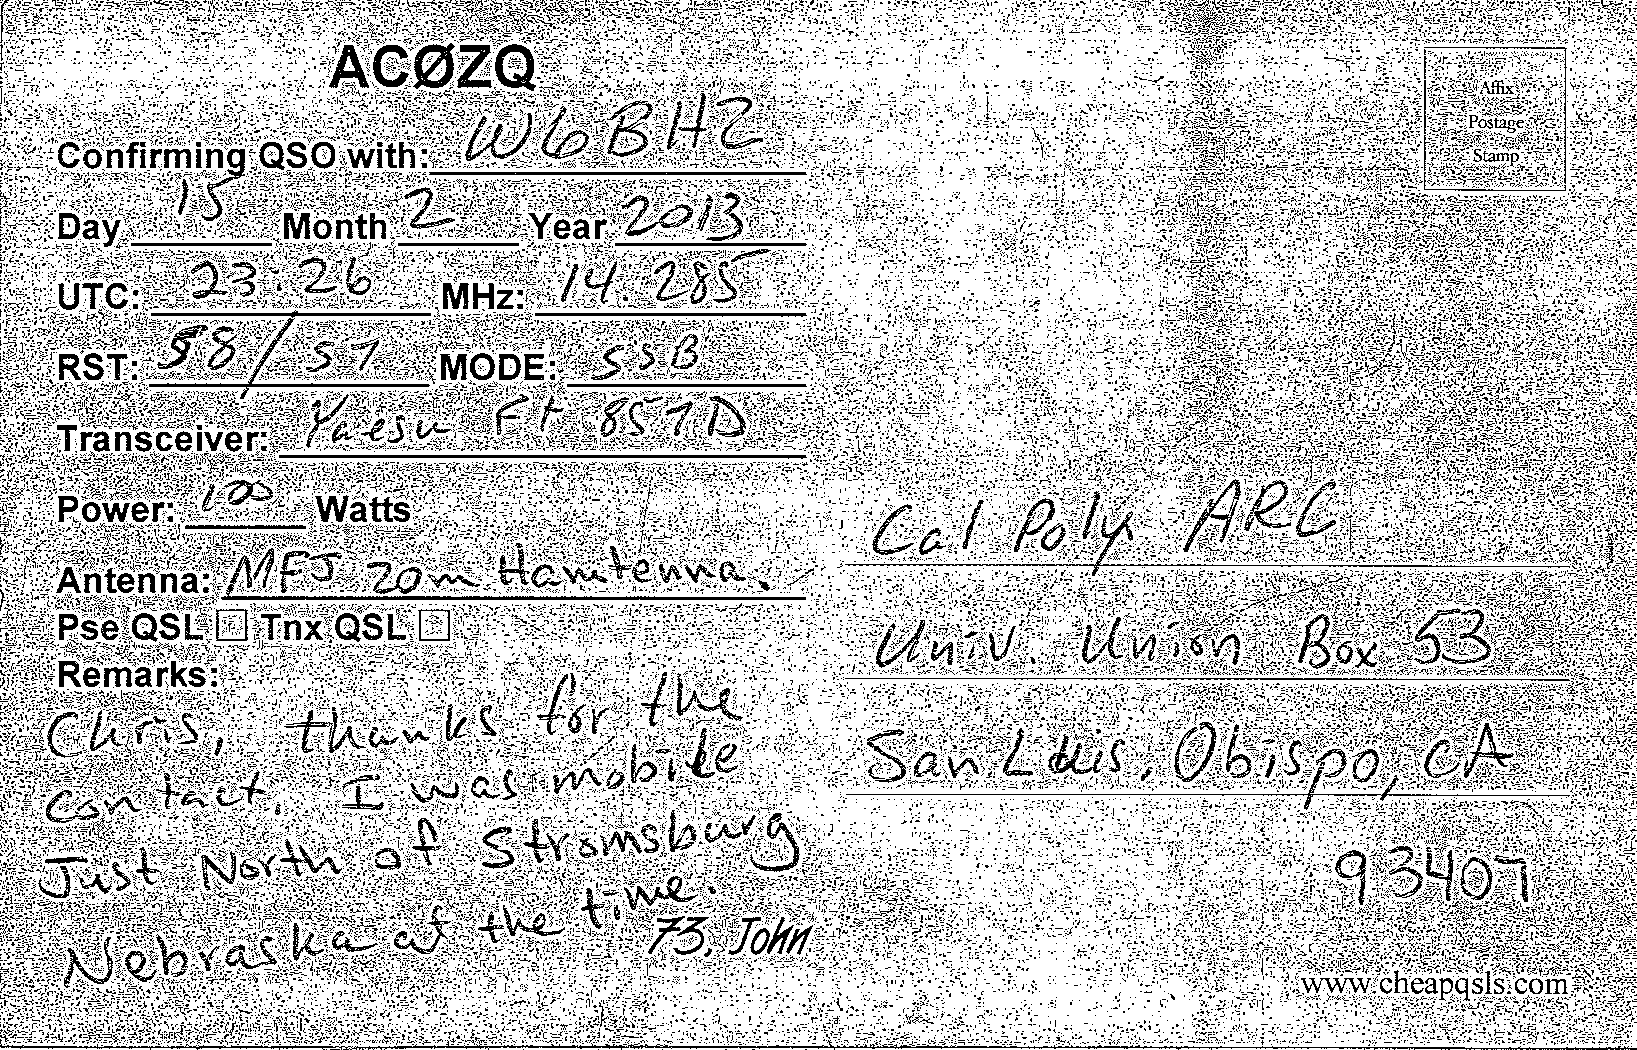 ACØZQ
Confirming QSO with: W6BHZ
Day 15 Month 2 Year 2013
UTC: 23:26 MHz: 14.285
RST: 58/57 MODE: SSB
Transceiver: Yaesu Ft 857D
Power: 100 Watts
Antenna: MFJ 20m Hamtenna.
Pse QSL Tnx QSL
Remarks:
Chris, thanks for the
contact. I was mobile
Just North of Stromsburg
Nebraska at the time.
73, John
Affix
Postage
Stamp
Cal Poly ARC
Univ. Union Box 53
San Luis, Obispo, CA
93407
www.cheapqsls.com